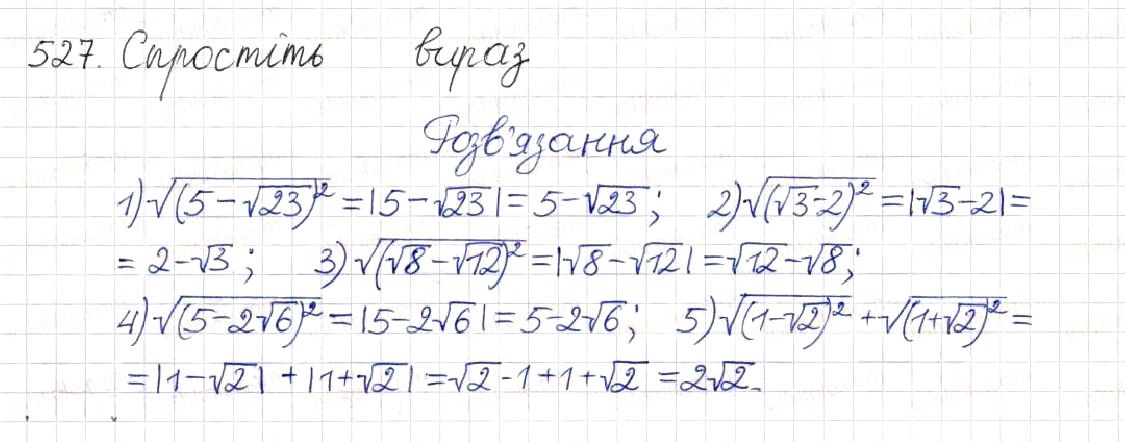 527. Спростіть вираз
Розв'язання
1) √(5-√23)² = |5-√23| = 5-√23; 2) √(√3-2)² = |√3-2| =
= 2-√3; 3) √(√8-√12)² = |√8-√12| = √12-√8;
4) √(5-2√6)² = |5-2√6| = 5-2√6; 5) √(1-√2)² + √(1+√2)² =
= |1-√2| + |1+√2| = √2-1+1+√2 = 2√2.